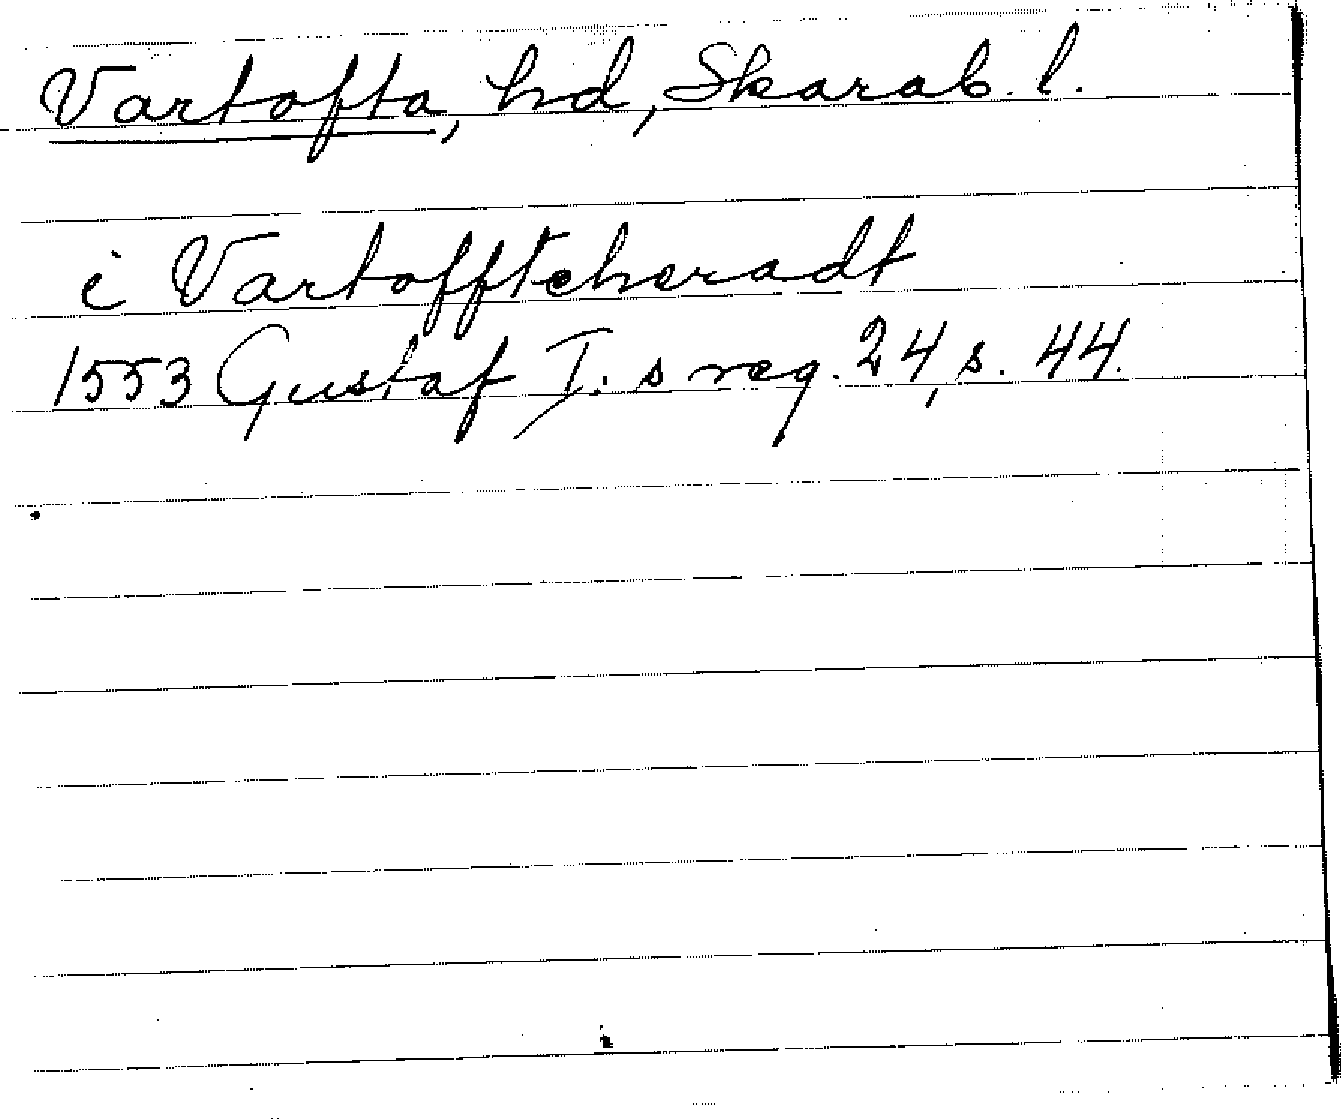 Vartofta, hd, Skarab. l.
i Vartoffteheradt
1553 Gustaf I. s reg. 24, s. 44.